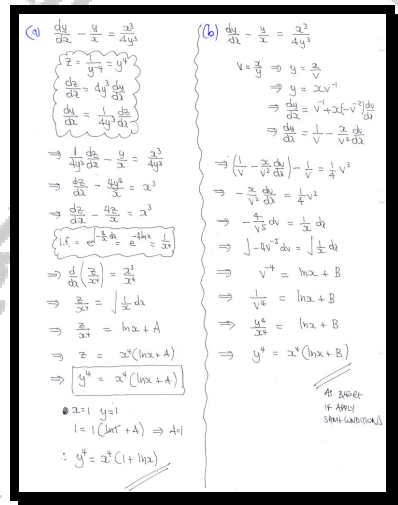 (a) dy/dx - y/x = x³/4y³
z = 1/y⁻⁴ = y⁴
dz/dx = 4y³ dy/dx
dy/dx = 1/4y³ dz/dx
⇒ 1/4y³ dz/dx - y/x = x³/4y³
⇒ dz/dx - 4y⁴/x = x³
⇒ dz/dx - 4z/x = x³
I.F. = e^∫-4/x dx = e^-4lnx = 1/x⁴
⇒ d/dx (z/x⁴) = x³/x⁴
⇒ z/x⁴ = ∫ 1/x dx
⇒ z/x⁴ = lnx + A
⇒ z = x⁴(lnx + A)
⇒ y⁴ = x⁴(lnx + A)
• x=1 y=1
1 = 1(ln1 + A) ⇒ A=1
∴ y⁴ = x⁴(1 + lnx)
(b) dy/dx - y/x = x³/4y³
V = x/y ⇒ y = x/V
⇒ y = xv⁻¹
⇒ dy/dx = v⁻¹ + x(-v⁻²) dv/dx
⇒ dy/dx = 1/v - x/v² dv/dx
⇒ (1/v - x/v² dv/dx) - 1/v = 1/4 v³
⇒ - x/v² dv/dx = 1/4 v³
⇒ - 4/v⁵ dv = 1/x dx
⇒ ∫ -4v⁻⁵ dv = ∫ 1/x dx
⇒ v⁻⁴ = lnx + B
⇒ 1/v⁴ = lnx + B
⇒ y⁴/x⁴ = lnx + B
⇒ y⁴ = x⁴(lnx + B)
AS BEFORE
IF APPLY
SAME CONDITIONS